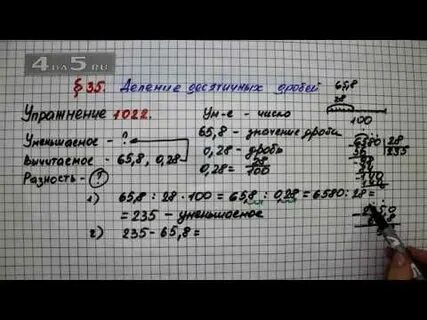 4BA5.RU
§ 35. Деление десятичных дробей
Упражнение 1022.
Уменьшаемое - ?
Вычитаемое - 65,8, 0,28
Разность - ?
Ум-е - число
65,8 - значение дроби
0,28 - дробь
0,28 = 28/100
65,8
28
100
6580 28
56 235
98
84
140
140
1) 65,8 : 28 · 100 = 65,8 : 0,28 = 6580 : 28 =
= 235 - уменьшаемое
2) 235 - 65,8 =